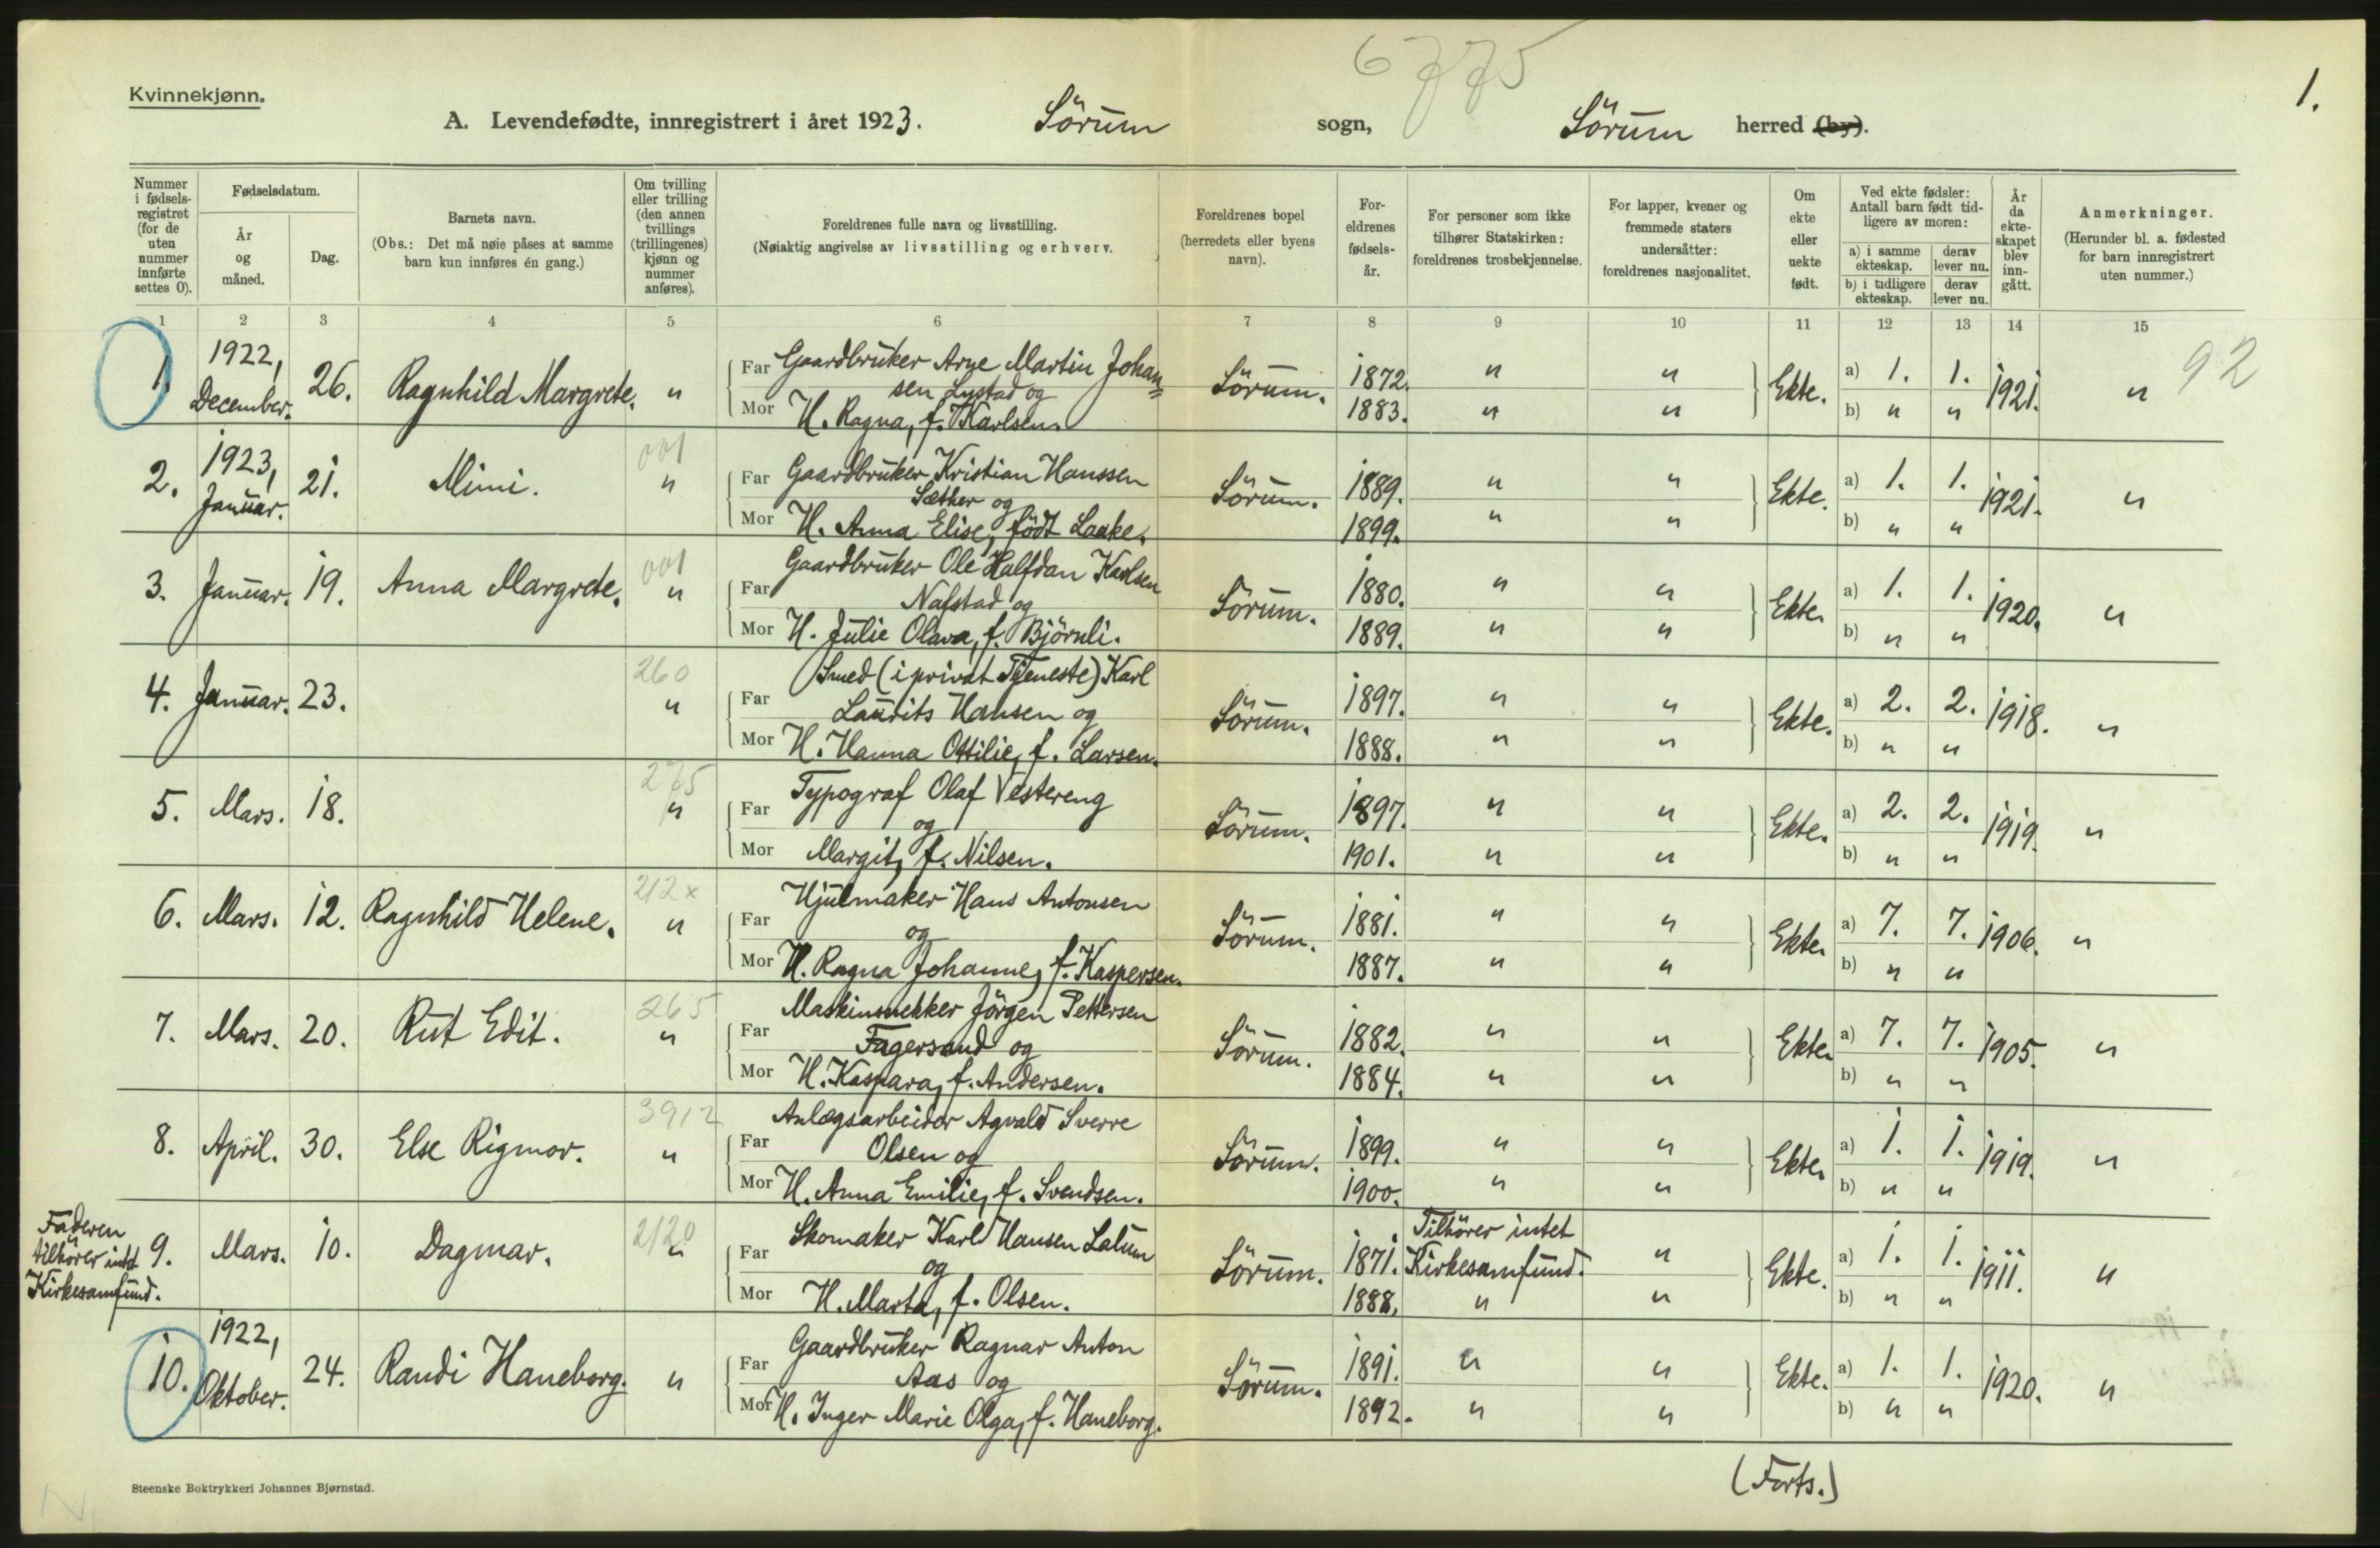 6775
1.
Kvinnekjønn.
A. Levendefødte, innregistrert i året 1923. Sörum sogn, Sörum herred (by).
Nummer i fødselsregistret (for de uten nummer innførte settes 0).
Fødselsdatum.
År og måned.
Dag.
Barnets navn.
(Obs.: Det må nøie påses at samme barn kun innføres én gang.)
Om tvilling eller trilling (den annen tvillings (trillingenes) kjønn og nummer anføres).
Foreldrenes fulle navn og livsstilling.
(Nøiaktig angivelse av livsstilling og erhverv.
Foreldrenes bopel (herredets eller byens navn).
Foreldrenes fødselsår.
For personer som ikke tilhører Statskirken: foreldrenes trosbekjennelse.
For lapper, kvener og fremmede staters undersåtter: foreldrenes nasjonalitet.
Om ekte eller uekte født.
Ved ekte fødsler: Antall barn født tidligere av moren:
a) i samme ekteskap. derav lever nu.
b) i tidligere ekteskap. derav lever nu.
År da ekteskapet blev inngått.
Anmerkninger.
(Herunder bl. a. fødested for barn innregistrert uten nummer.)
1 2 3 4 5 6 7 8 9 10 11 12 13 14 15
92
1. 1922, December. 26. Ragnhild Margrete. " Far Gaardbruker Arne Martin Johan= Sörum. 1872. " " Ekte. a) 1. 1. 1921. "
sen Lystad og
Mor H. Ragna, f. Karlsen. 1883. " " b) " "
001
2. 1923, Januar. 21. Mimi. " Far Gaardbruker Kristian Hanssen Sörum. 1889. " " Ekte. a) 1. 1. 1921. "
Sæther og
Mor H. Anna Elise, född Laake. 1899. " " b) " "
001
3. Januar. 19. Anna Margrete. " Far Gaardbruker Ole Halfdan Karlsen Sörum. 1880. " " Ekte. a) 1. 1. 1920. "
Nafstad og
Mor H. Julie Olava, f. Björnli. 1889. " " b) " "
260
4. Januar. 23. " Far Smed (i privat Tjeneste) Karl Sörum. 1897. " " Ekte. a) 2. 2. 1918. "
Laurits Hansen og
Mor H. Hanna Ottilie, f. Larsen. 1888. " " b) " "
275
5. Mars. 18. " Far Typograf Olaf Vestereng Sörum. 1897. " " Ekte. a) 2. 2. 1919. "
og
Mor Margit, f. Nilsen. 1901. " " b) " "
212x
6. Mars. 12. Ragnhild Helene. " Far Hjulmaker Hans Antonsen Sörum. 1881. " " Ekte. a) 7. 7. 1906. "
og
Mor H. Ragna Johanne, f. Kaspersen. 1887. " " b) " "
265
7. Mars. 20. Rut Edit. " Far Maskinsnekker Jörgen Pettersen Sörum. 1882. " " Ekte. a) 7. 7. 1905. "
Fagersand og
Mor H. Kaspara, f. Andersen. 1884. " " b) " "
3912
8. April. 30. Else Rigmor. " Far Anlægsarbeider Agvald Sverre Sörum. 1899. " " Ekte. a) 1. 1. 1919. "
Olsen og
Mor H. Anna Emilie, f. Svendsen. 1900. " " b) " "
Faderen tilhörer intet Kirkesamfund.
2120
9. Mars. 10. Dagmar. " Far Skomaker Karl Hansen Lalum Sörum. 1871. Tilhörer intet Kirkesamfund. " Ekte. a) 1. 1. 1911. "
og
Mor H. Marta, f. Olsen. 1888. " " b) " "
10. 1922, Oktober. 24. Randi Haneborg. " Far Gaardbruker Ragnar Anton Sörum. 1891. " " Ekte. a) 1. 1. 1920. "
Aas og
Mor H. Inger Marie Olga, f. Haneborg. 1892. " " b) " "
(Forts.)
Steenske Boktrykkeri Johannes Bjørnstad.